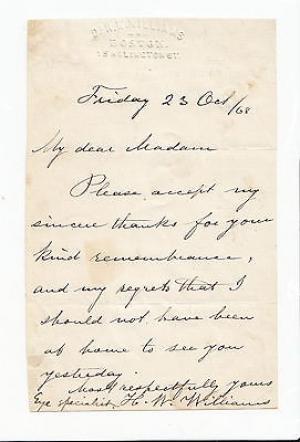 DR. H. W. WILLIAMS
BOSTON.
15 ARLINGTON ST.
Friday 23 Oct/68
My dear Madam
Please accept my
sincere thanks for your
kind remembrance,
and my regrets that I
should not have been
at home to see you
yesterday.
Most respectfully yours
Eye specialist. H. W. Williams